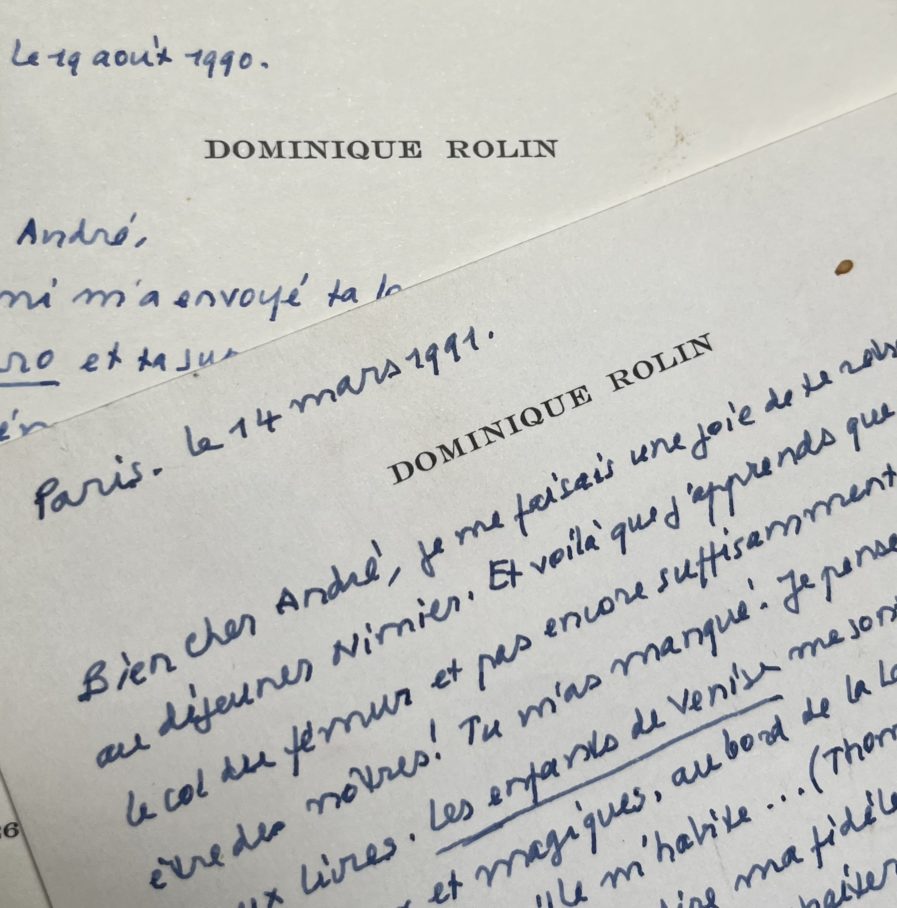 Le 19 août 1990.
DOMINIQUE ROLIN
André,
m'a envoyé ta
et ta
Paris. le 14 mars 1991.
DOMINIQUE ROLIN
Bien cher André, je me faisais une joie de te
au déjeuner Nimier. Et voilà que j'apprends que
le col du fémur et pas encore suffisamment
être des nôtres! Tu m'as manqué. Je pense
livres. Les enfants de Venise me sont
et magiques, au bord de la
m'habite... (Thom
ma fidèle